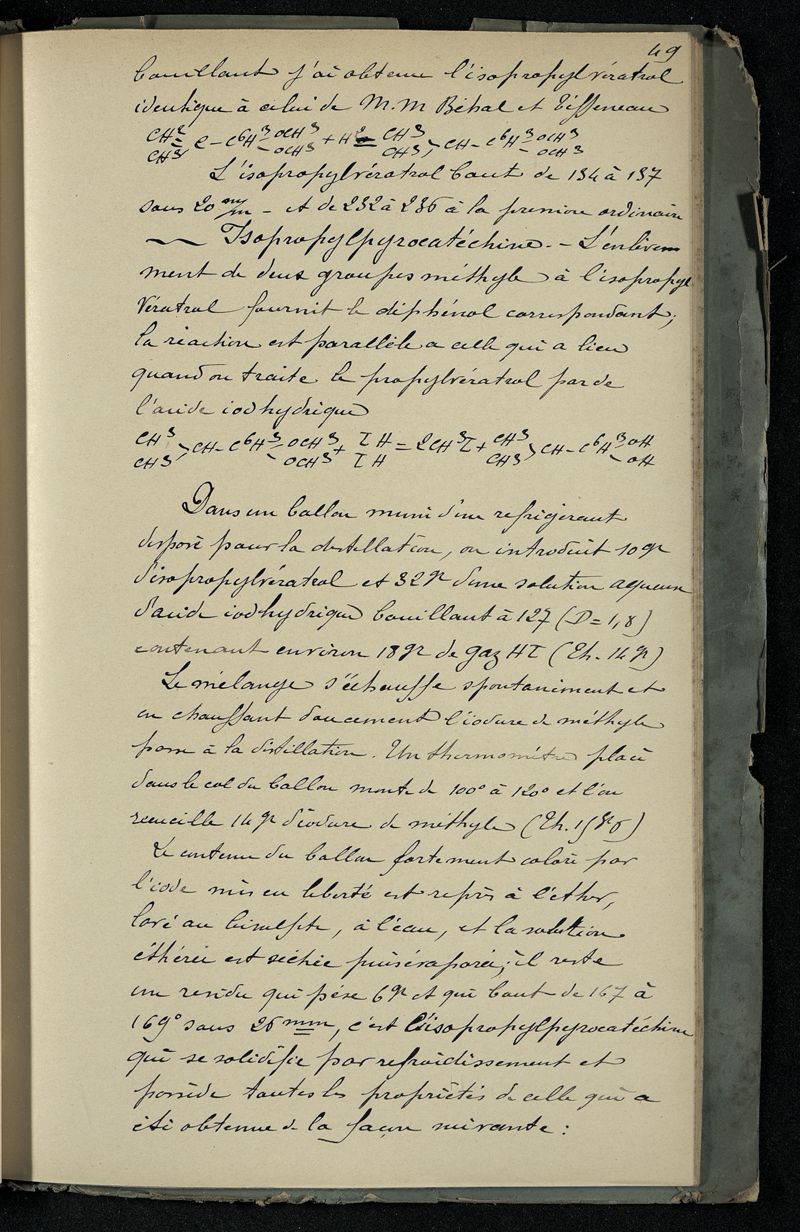 49
bouillant j'ai obtenu l'isopropylvératrol
identique à celui de M.M Béhal et Tiffeneau
CH² CH³ > C - C⁶H³ - OCH³ - OCH³ + H² = CH³ CH³ > CH - C⁶H³ - OCH³ - OCH³
L'isopropylvératrol bout de 134 à 137
sous 20 m/m - et de 232 à 236 à la pression ordinaire
Isopropylpyrocatéchine. - L'enlève-
ment de deux groupes méthyle à l'isopropyl
vératrol fournit le diphénol correspondant;
la réaction est parallèle a celle qui a lieu
quand on traite le propylvératrol par de
l'acide iodhydrique
CH³ CH³ > CH - C⁶H³ - OCH³ - OCH³ + IH IH = 2CH³I + CH³ CH³ > CH - C⁶H³ - OH - OH
Dans un ballon muni d'un refrigerant
disposé pour la distillation, on introduit 10gr
d'isopropylvératrol et 32gr d'une solution aqueuse
d'acide iodhydrique bouillant à 127 (D = 1,8)
contenant environ 18gr de gaz HI (Th. 14gr)
Le mélange s'échauffe spontanément et
en chauffant doucement l'iodure de méthyle
passe à la distillation. Un thermomètre placé
dans le col du ballon monte de 100° à 120° et l'on
recueille 14gr d'iodure de méthyle (Th. 15gr)
Le contenu du ballon fortement coloré par
l'iode mis en liberté est repris à l'éther,
lavé au bisulfite, à l'eau, et la solution
éthérée est séchée puis évaporée; il reste
un residu qui pèse 6gr et qui bout de 167 à
169° sous 26 mm, c'est l'isopropylpyrocatéchine
qui se solidifie par refroidissement et
possède toutes les propriétés de celle qui a
été obtenue de la façon suivante: